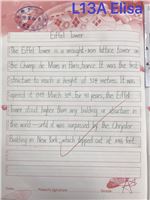 L13A Elisa
Eiffel Tower
The Eiffel Tower is a wrought-iron lattice tower on
the Champ de Mars in Paris, France. It was the first
structure to reach a height of 300 meters. It was
opened in 1889 March 31st. For 41 years, the Eiffel
tower stood higher than any building or structure in
the world until it was surpassed by the Chrysler
Building in New York, which topped out at 1046 feet.
Date:
Parent's signature:
Grade: